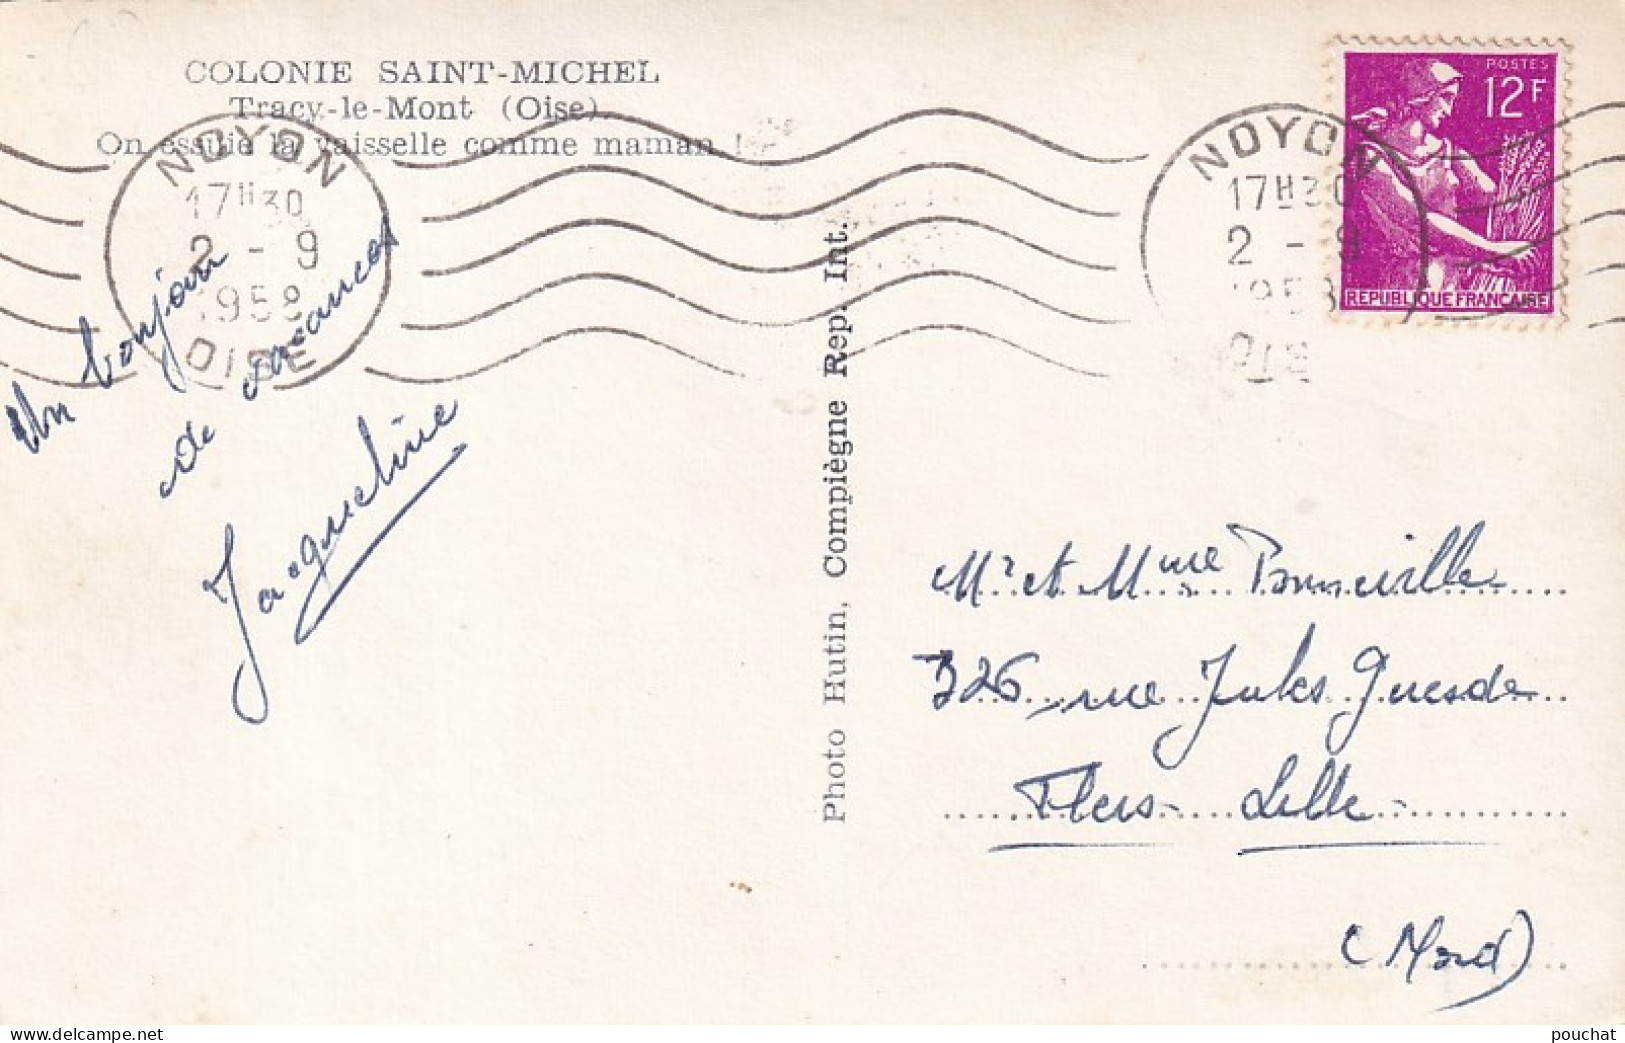 COLONIE SAINT-MICHEL
Tracy-le-Mont (Oise)
On essuie la vaisselle comme maman !
NOYON
17H30
2 - 9
1958
OISE
Un bonjour
de vacances
Jacqueline
Photo Hutin, Compiègne Rep. Int.
NOYON
17H30
2 - 9
1958
OISE
POSTES
12F
REPUBLIQUE FRANCAISE
Mr et Mme
326 rue Jules Guesde
Flers - Lille
(Nord)
www.delcampe.net
pouchat